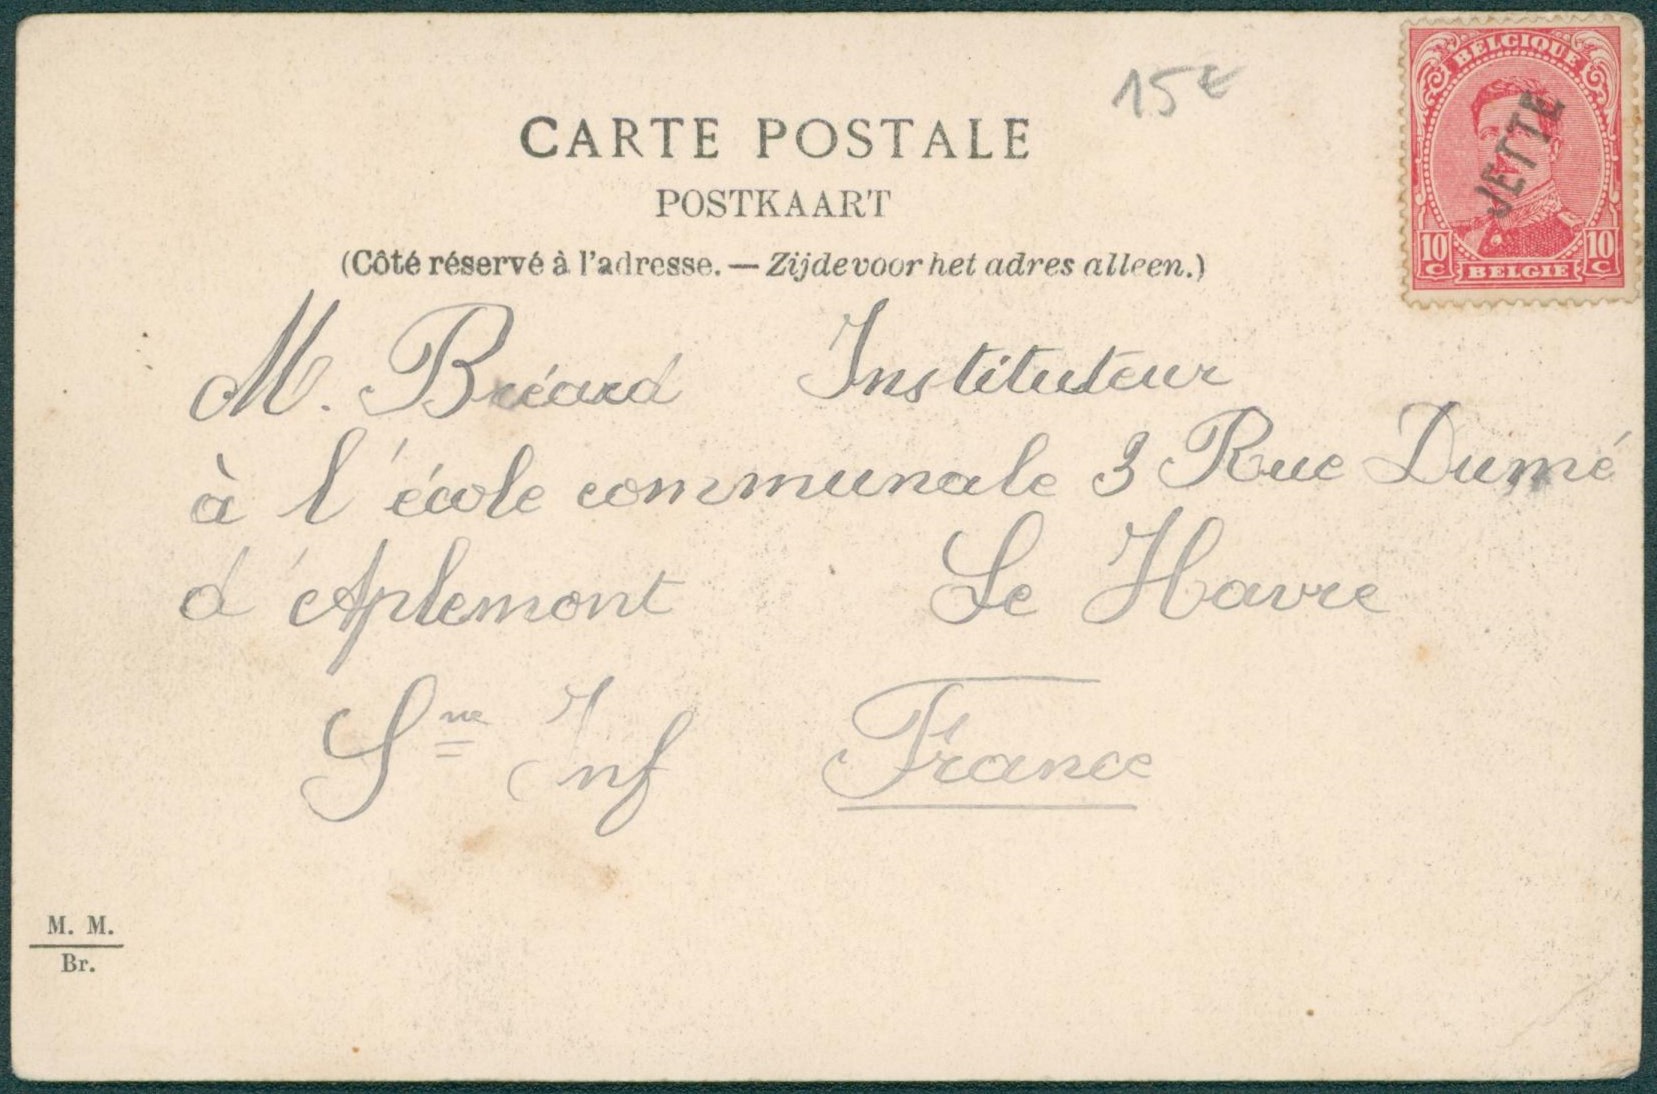 15€
CARTE POSTALE
POSTKAART
(Côté réservé à l'adresse. — Zijde voor het adres alleen.)
BELGIQUE
JETTE
10 C BELGIE 10 C
M. Bréard Instituteur
à l'école communale 3 Rue Dumé
d'Aplemont Le Havre
Sne Inf France
M. M.
Br.